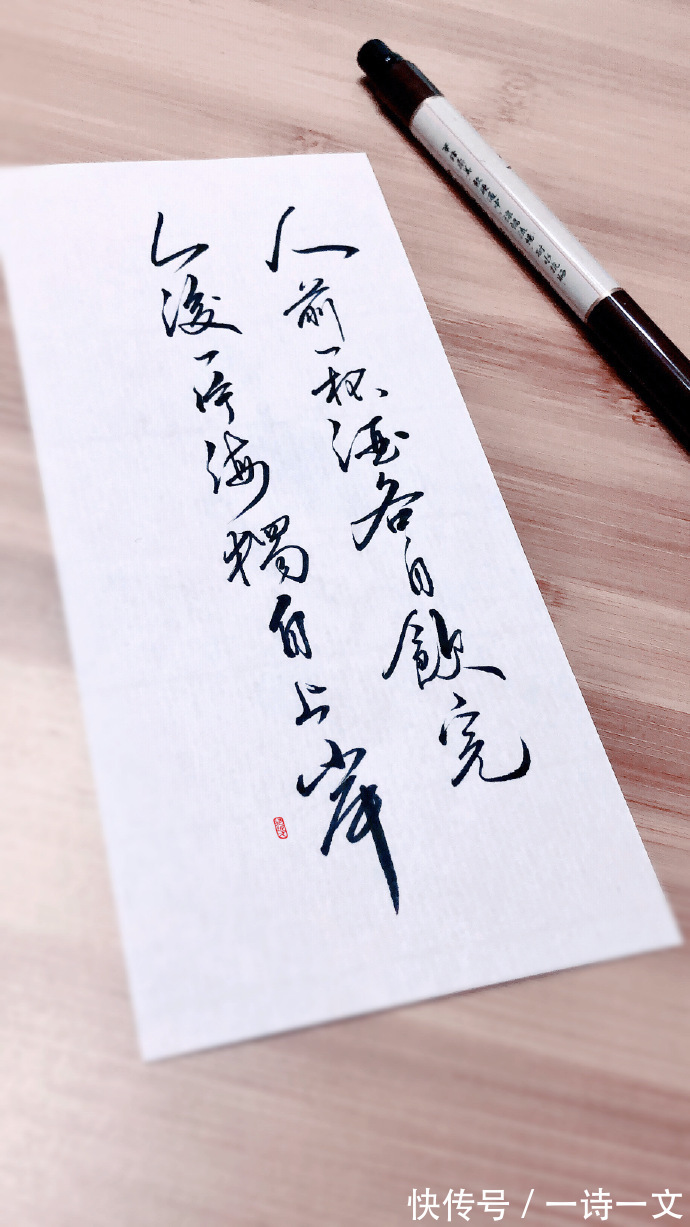 人前一杯酒各自飲完
人後一片海獨自上岸
快传号 / 一诗一文